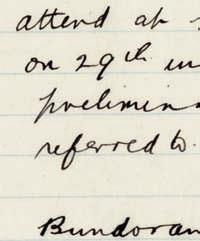 attend at
on 29th in
prelimin
referred to.
Bundoran